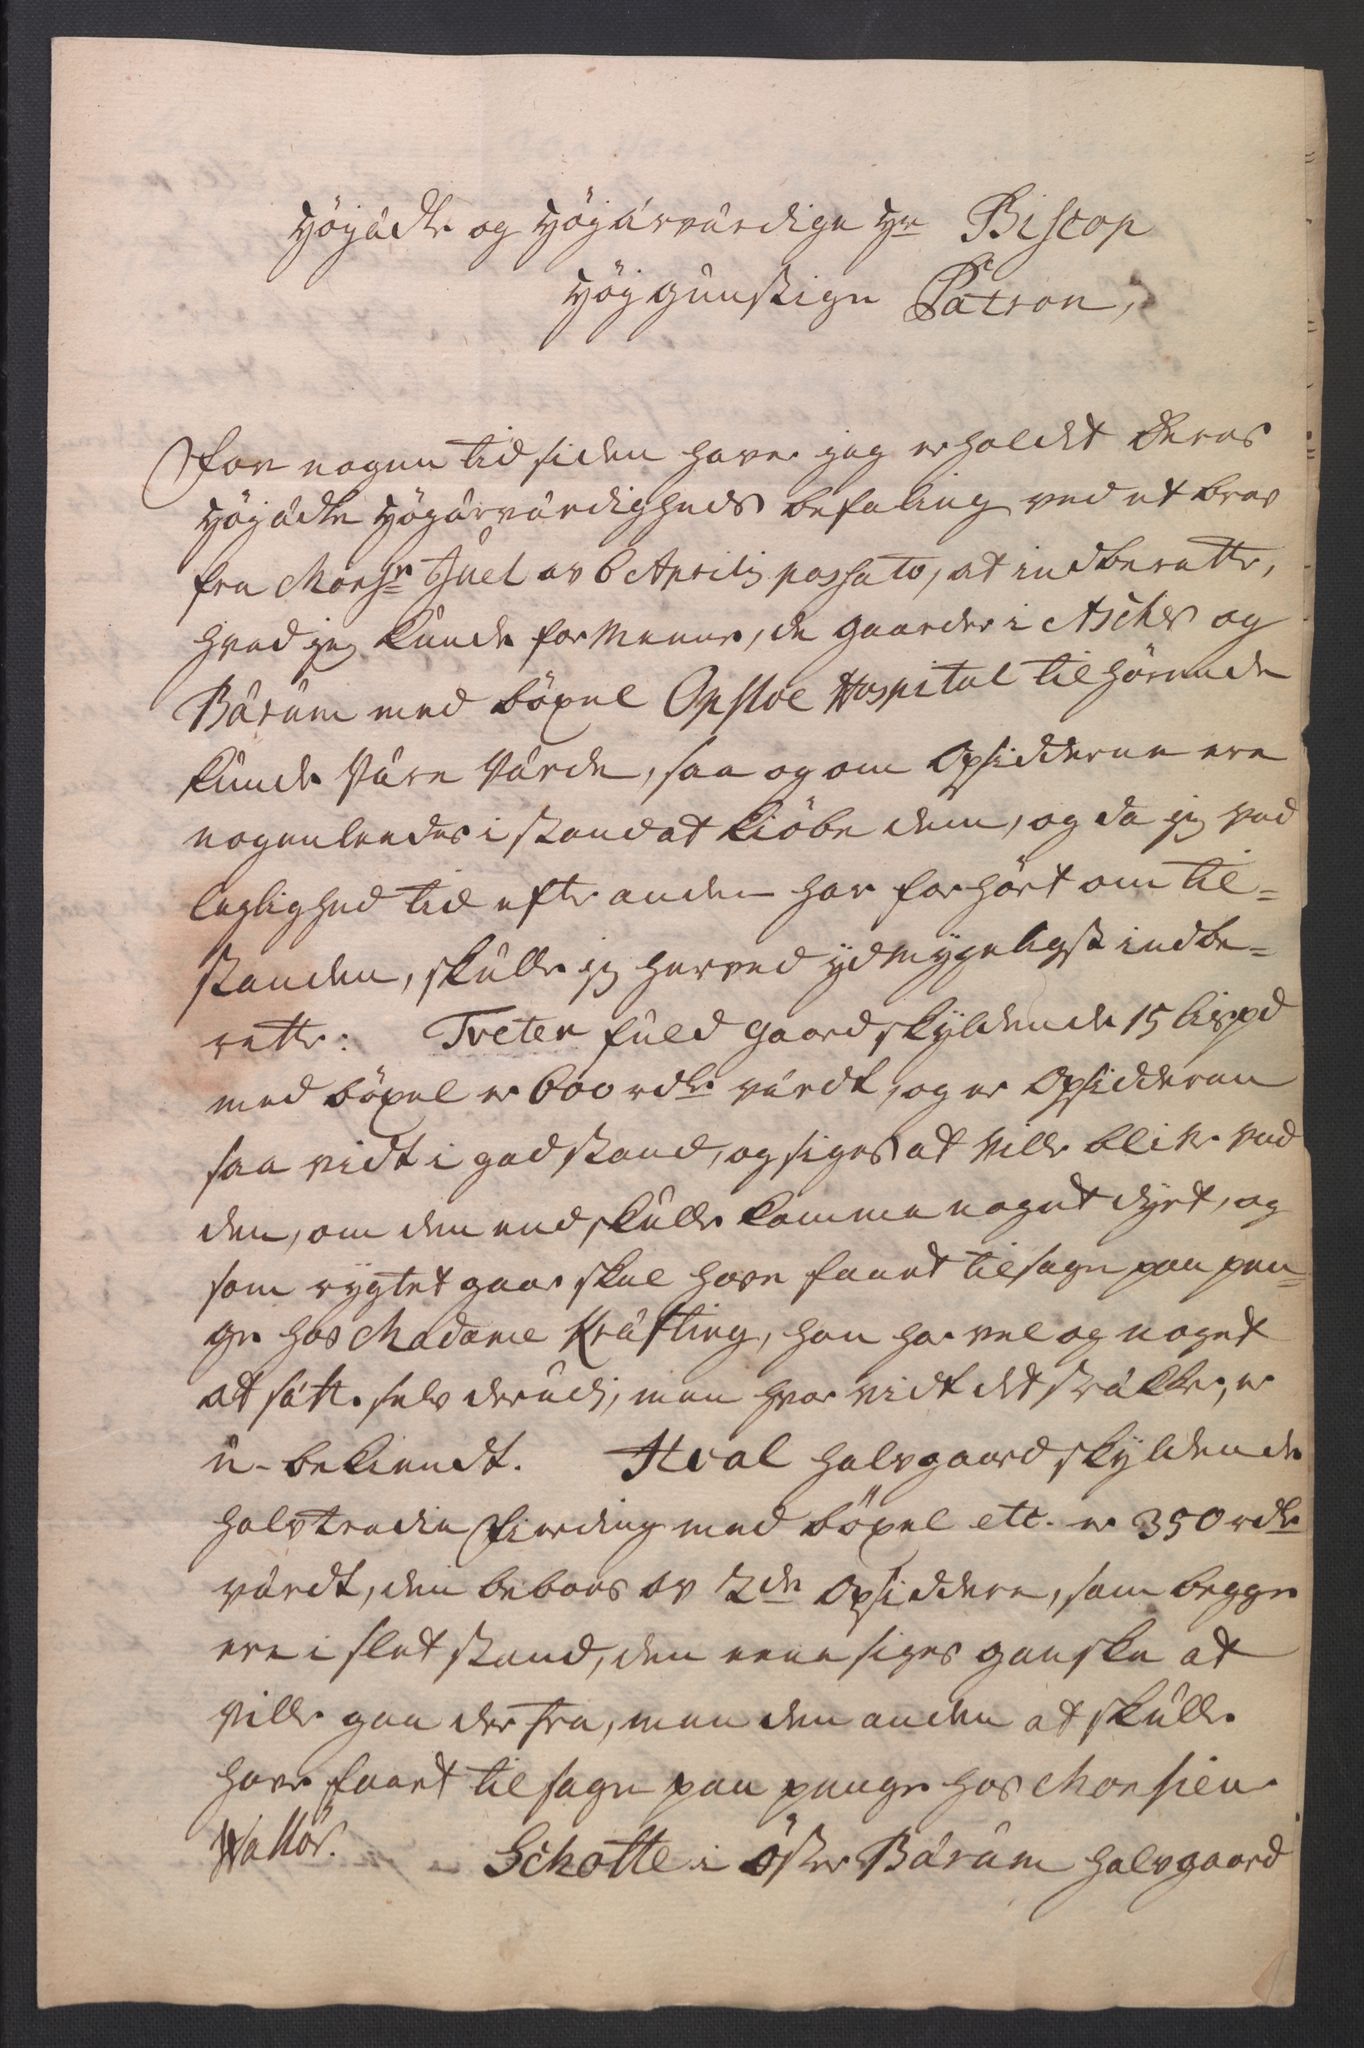 Højædle og Højærværdige Hr Biscop
Høygunstige Patron,
For nogen tid siden haver jeg erholdet Deres
Højædle Højærværdigheds befaling ved et brev
fra Monsr Juel av 6 Aprilis passato, at indberette,
hvad jeg kunde formeene, de gaarder i Ascher og
Bærum med böxel Opsloe Hospital tilhörende
kunde være værde, saa og om Opsidderne ere
nogenlundes i stand at kiöbe dem, og da jeg ved
leylighed tid efter anden har forhört om til=
standen, skulle jeg herved ydmygeligst indbe=
rette: Tveter fuld gaard skyldende 15 lispd
med böxel er 600 rdlr værdt, og er Opsidderen
saa vidt i god stand, og siges at ville blive ved
den, om den end skulle komme noget dyrt, og
som rygtet gaar skal have faaet tilsagn paa pen=
ge hos Madame Kräfting, han har vel og noget
at sætte selv derudi, men hvor vidt det strækker, er
u-bekiendt. Hval halvgaard skyldende
halvtredie fierding med böxel etc. er 350 rdlr
værdt, den beboes av 2de Opsiddere, som begge
ere i slet stand, den eene siges ganske at
ville gaa der fra, men den anden at skulle
have faaet tilsagn paa penge hos Monsieur
Wallör. Schotte i öster Bærum halvgaard